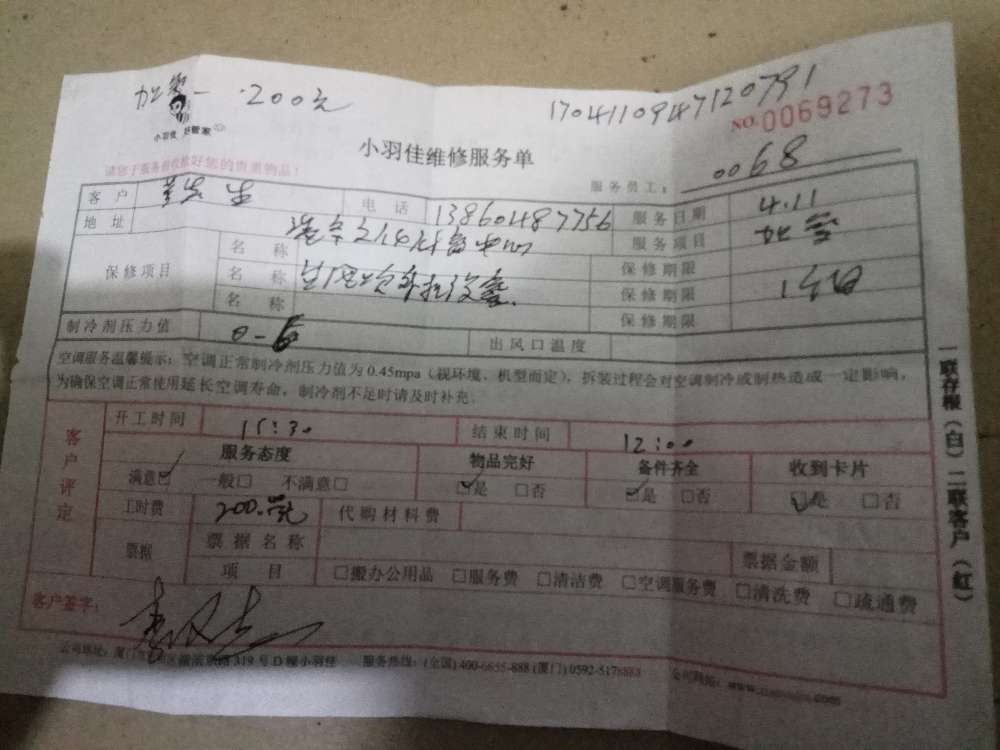 加氨 200元
17041109947120791
小羽佳 好管家
NO.0069273
小羽佳维修服务单
请您于服务前收捡好您的贵重物品!
服务员工: 0068
客户 先生 电话 13860487756 服务日期 4.11
地址 服务项目
保修项目 名称 保修期限
名称 保修期限
名称 保修期限
制冷剂压力值 出风口温度
空调服务温馨提示:空调正常制冷剂压力值为0.45mpa(视环境、机型而定),拆装过程会对空调制冷或制热造成一定影响,
为确保空调正常使用延长空调寿命,制冷剂不足时请及时补充。
客户评定
开工时间 11:30 结束时间 12:00
服务态度 物品完好 备件齐全 收到卡片
满意☑ 一般□ 不满意□ ☑是 □否 ☑是 □否 ☑是 □否
工时费 200.元 代购材料费
票据 票据名称 票据金额
项目 □搬办公用品 □服务费 □清洁费 □空调服务费 □清洗费 □疏通费
客户签字:
公司地址:厦门 319号D幢小羽佳 服务热线:(全国)400-6655-888(厦门)0592-5178888 公司网站:www.
一联存根(白)二联客户(红)